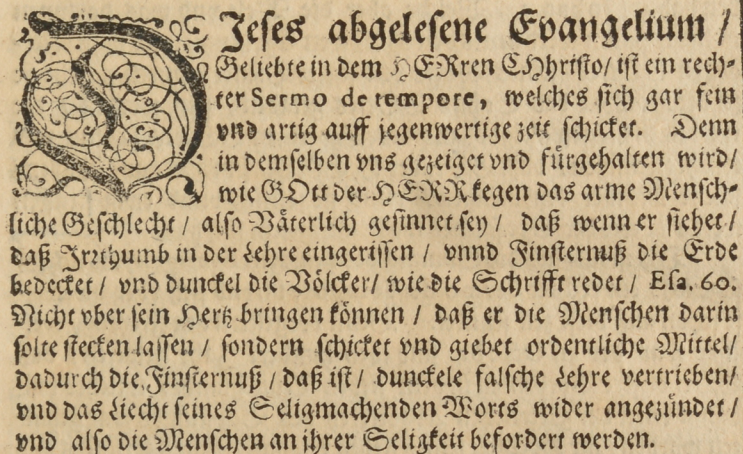 DIeses abgelesene Evangelium /
Geliebte in dem HERren CHhristo / ist ein rech-
ter Sermo de tempore, welches sich gar fein
vnd artig auff jegenwertige zeit schicket. Denn
in demselben vns gezeiget vnd fürgehalten wird /
wie GOtt der HERR kegen das arme Mensch-
liche Geschlecht / also Väterlich gesinnet sey / daß wenn er siehet /
daß Irrthumb in der Lehre eingerissen / vnnd Finsternuß die Erde
bedecket / vnd dunckel die Völcker / wie die Schrifft redet / Esa. 60.
Nicht vber sein Hertz bringen können / daß er die Menschen darin
solte stecken lassen / sondern schicket vnd giebet ordentliche Mittel /
dadurch die Finsternuß / daß ist / dunckele falsche Lehre vertrieben /
vnd das Liecht seines Seligmachenden Worts wider angezündet /
vnd also die Menschen an jhrer Seligkeit befordert werden.